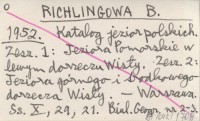 RICHLINGOWA B.
1952. Katalog jezior polskich.
Zesz. 1: Jeziora Pomorskie w
lewym dorzeczu Wisły. Zesz. 2:
Jeziora górnego i środkowego
dorzecza Wisły. — Warszawa.
Ss. X, 29, 21. Biul. Geogr. nr 2-3.